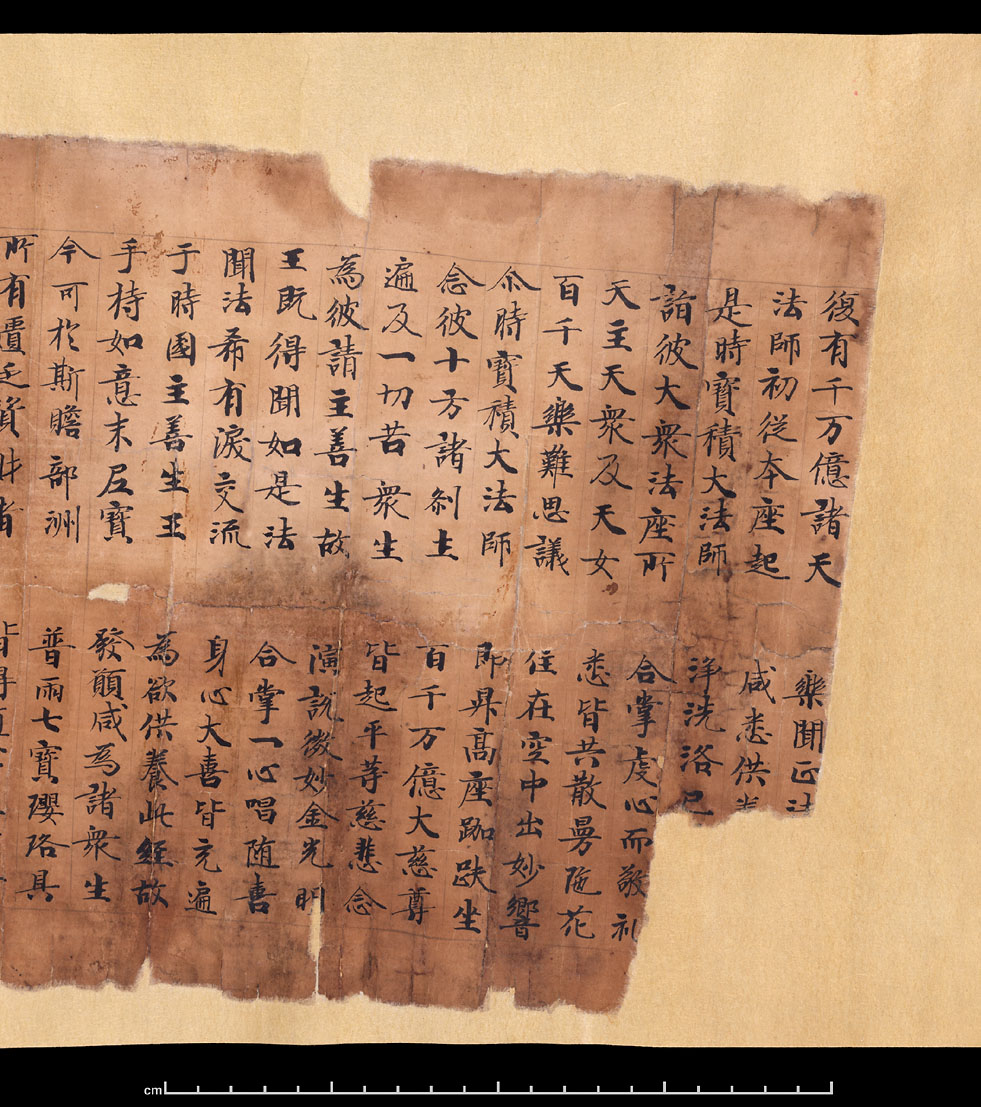 復有千万億諸天　樂聞正法
法師初從本座起　咸悉供養
是時寶積大法師　淨洗洛已
詣彼大衆法座所　合掌虔心而敬礼
天主天衆及天女　悉皆共散曼陁花
百千天樂難思議　住在空中出妙響
尒時寶積大法師　即昇髙座跏趺坐
念彼十方諸剎土　百千万億大慈尊
遍及一切苦衆生　皆起平等慈悲念
為彼請主善生故　演說微妙金光明
王既得聞如是法　合掌一心唱随喜
聞法希有淚交流　身心大喜皆充遍
于時國主善生王　為欲供養此經故
手持如意末尼寶　發願咸為諸衆生
今可於斯贍部洲　普雨七寶瓔珞具
所有匱乏資財者　皆得
cm